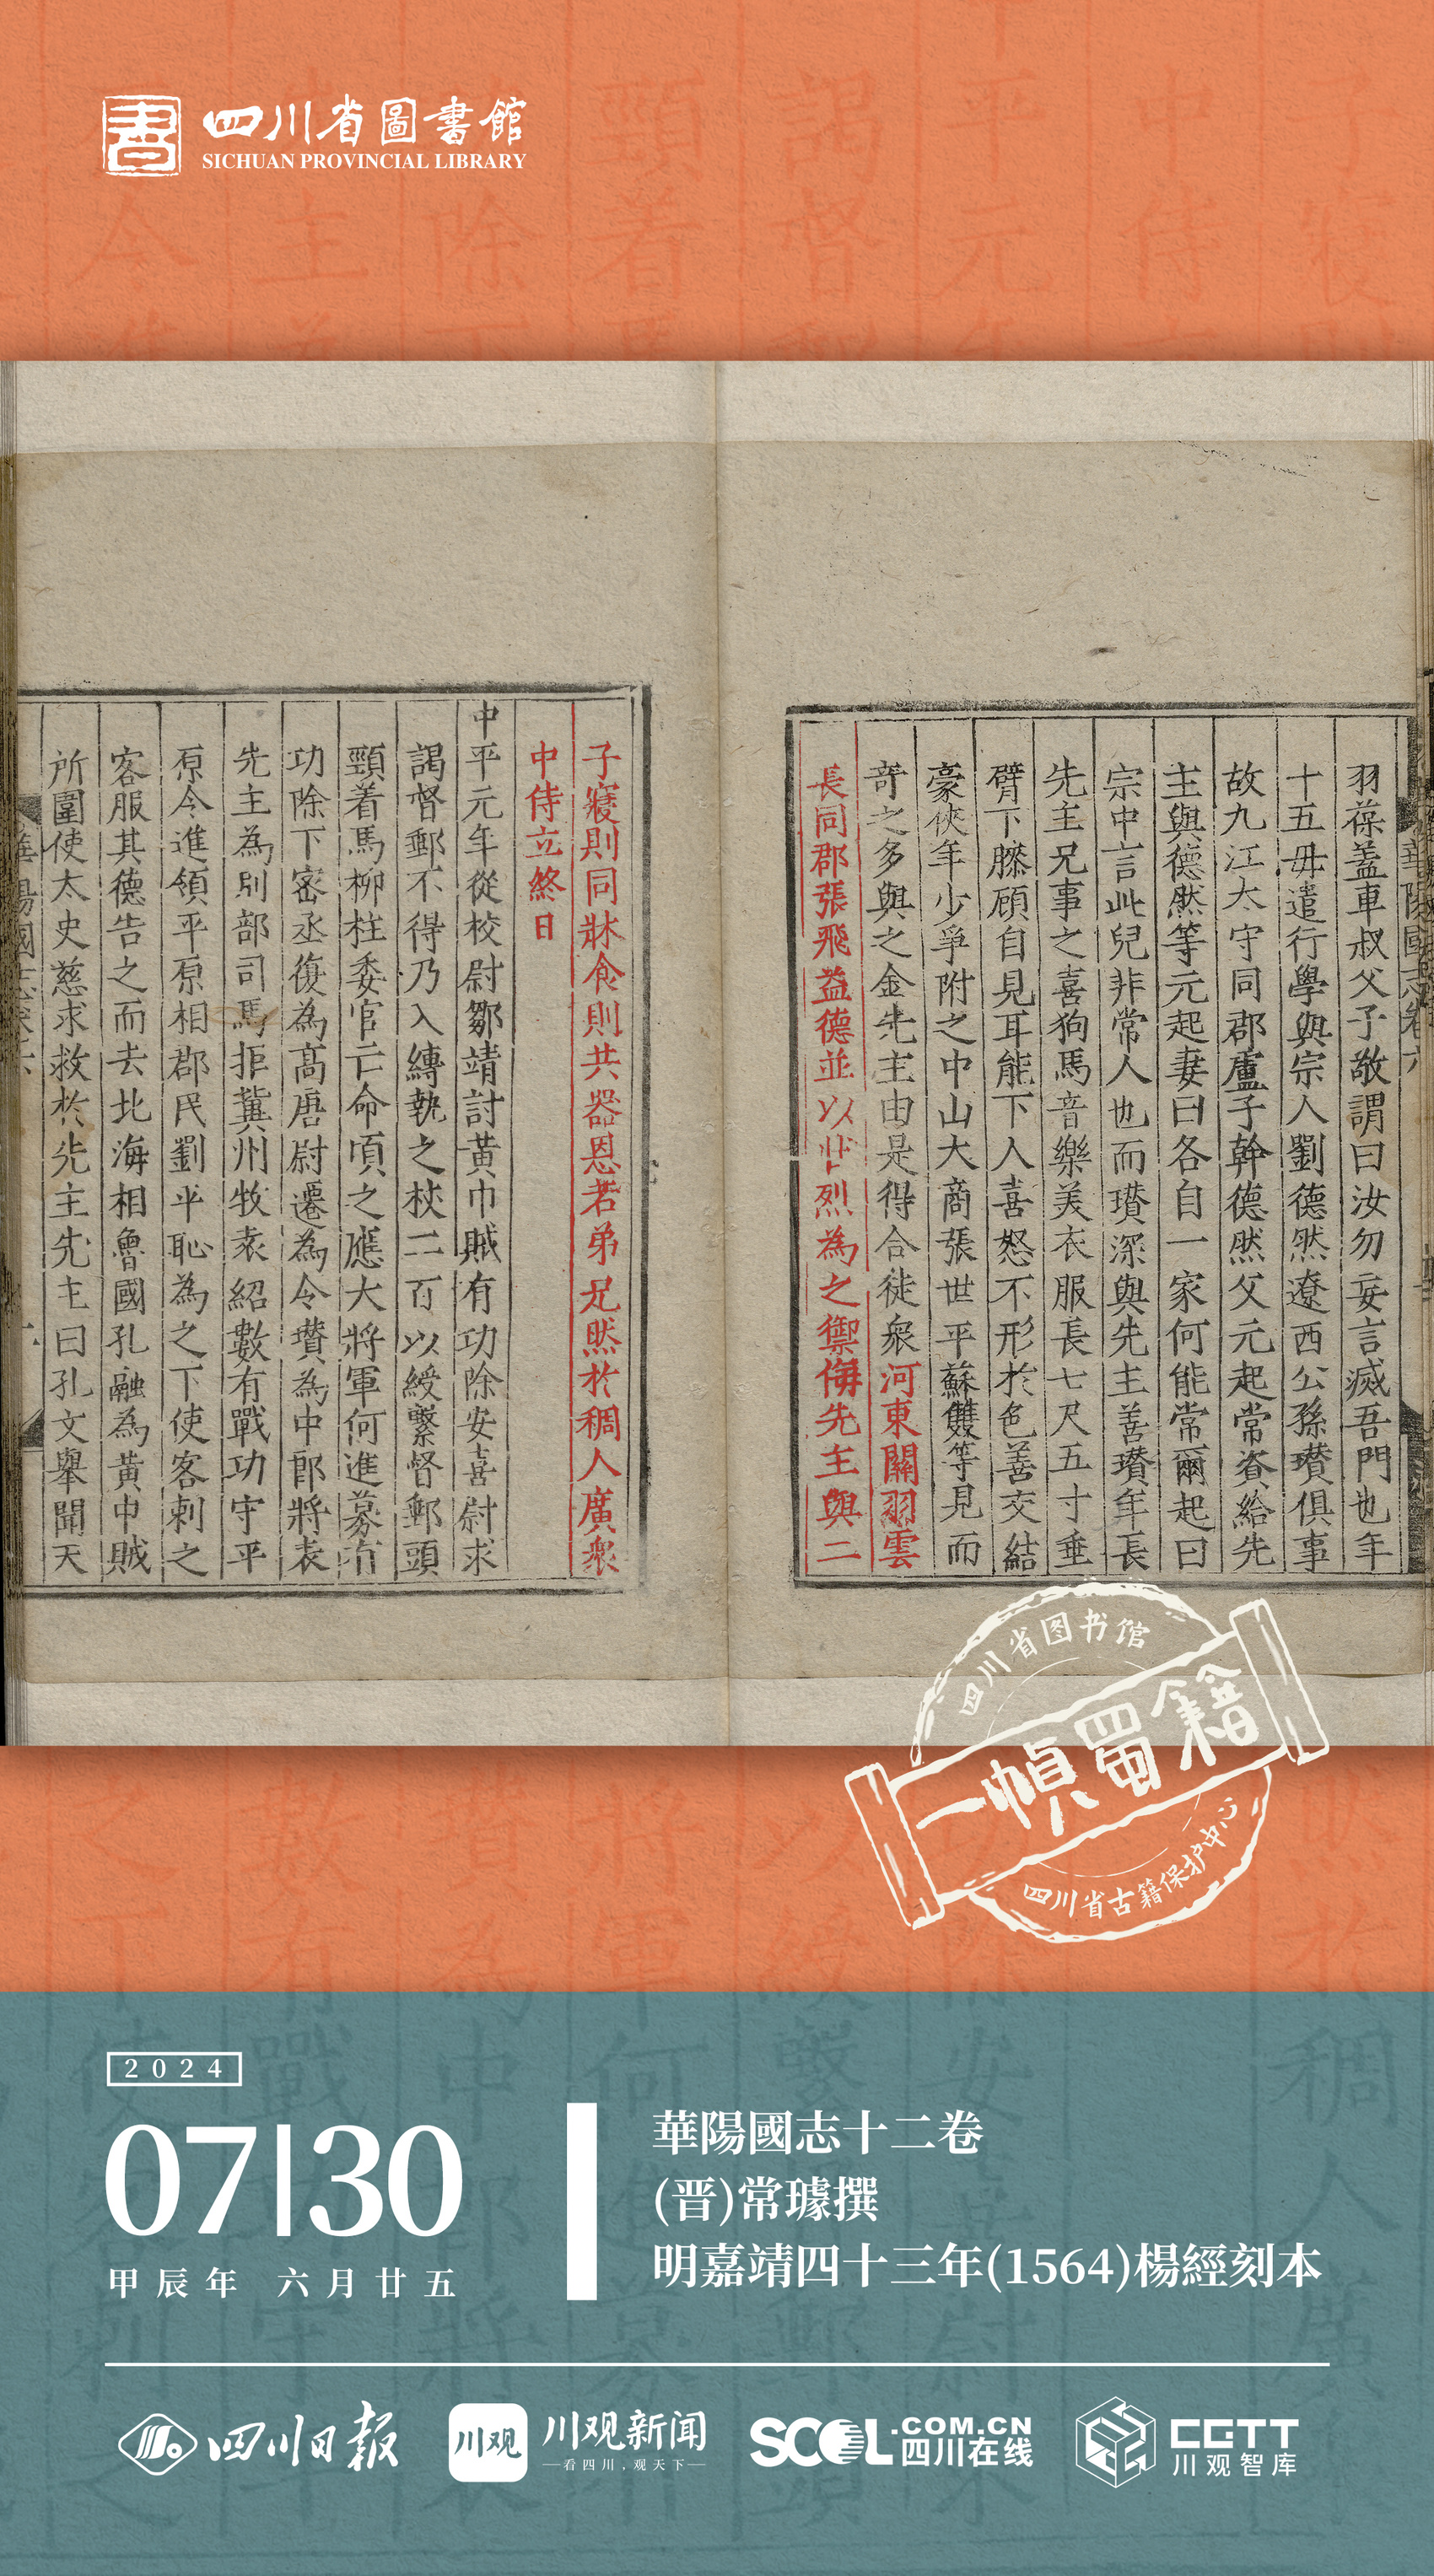 書
四川省圖書館
SICHUAN PROVINCIAL LIBRARY
華陽國志卷六
羽葆蓋車叔父子敬謂曰汝勿妄言滅吾門也年
十五毋遣行學與宗人劉德然遼西公孫瓚俱事
故九江太守同郡盧子幹德然父元起常資給先
主與德然等元起妻曰各自一家何能常爾起曰
宗中言此兒非常人也而瓚深與先主善瓚年長
先主兄事之喜狗馬音樂美衣服長七尺五寸垂
臂下膝顧自見耳能下人喜怒不形於色善交結
豪俠年少爭附之中山大商張世平蘇雙等見而
奇之多與之金先主由是得合徒衆河東關羽雲
長同郡張飛益德並以壯烈為之禦侮先主與二
子寢則同牀食則共器恩若弟兄然於稠人廣衆
中侍立終日
中平元年從校尉鄒靖討黃巾賊有功除安喜尉求
謁督郵不得乃入縛執之杖二百以綬繫督郵頭
頸着馬柳柱委官亡命頃之應大將軍何進募有
功除下密丞復為高唐尉遷為令瓚為中郎將表
先主為別部司馬拒冀州牧袁紹數有戰功守平
原令進領平原相郡民劉平恥為之下使客刺之
客服其德告之而去北海相魯國孔融為黃巾賊
所圍使太史慈求救於先主先主曰孔文舉聞天
四川省图书馆
一幀蜀籍
四川省古籍保护中心
2024
07|30
甲辰年 六月廿五
華陽國志十二卷
(晋)常璩撰
明嘉靖四十三年(1564)楊經刻本
四川日报
川观
川观新闻
—看四川，观天下—
SCOL.COM.CN
四川在线
CGTT
川观智库